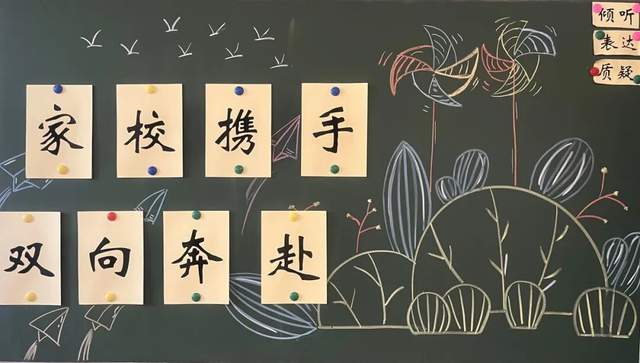 家校携手
双向奔赴
倾听
表达
质疑